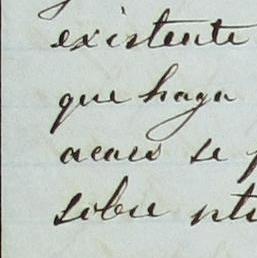 existente
que haga
acaso se
sobre